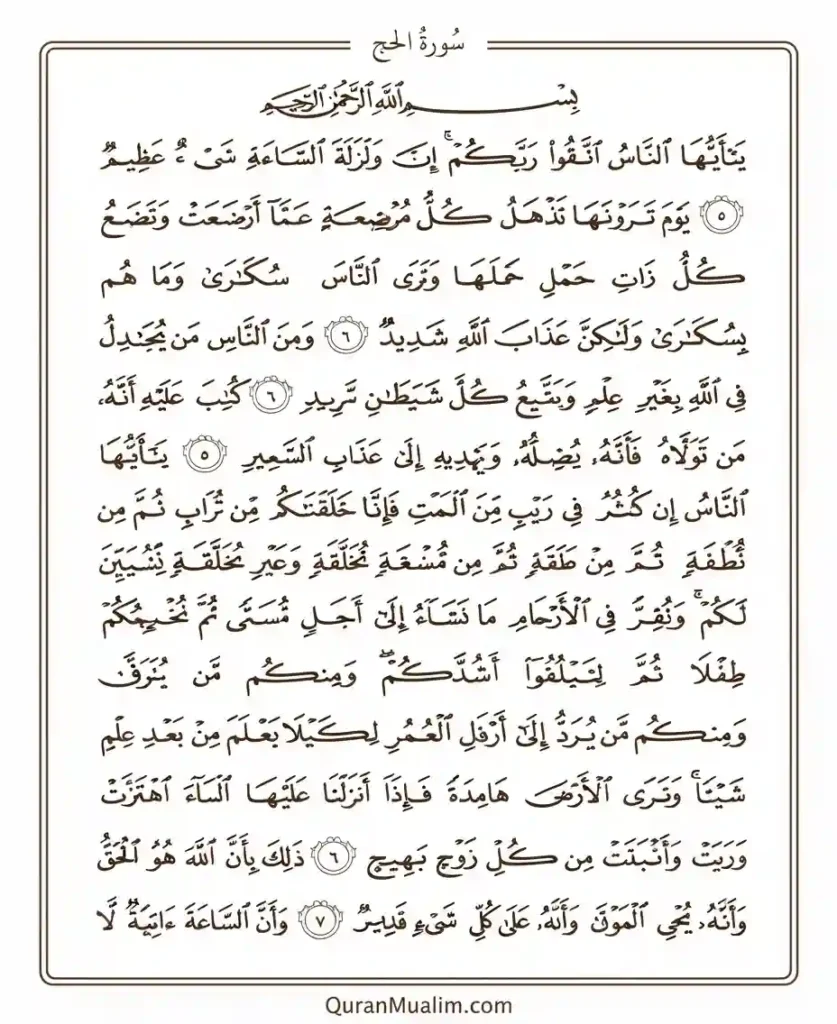 سُورَةُ الحج
بِسْمِ اللَّهِ الرَّحْمَٰنِ الرَّحِيمِ
يَٰٓأَيُّهَا النَّاسُ اتَّقُوا۟ رَبَّكُمْ ۚ إِنَّ وَلْزَلَةَ السَّاعَةِ شَىْءٌ عَظِيمٌ
٥ يَوْمَ تَرَوْنَهَا تَذْهَلُ كُلُّ مُرْضِعَةٍ عَمَّآ أَرْضَعَتْ وَتَضَعُ
كُلُّ ذَاتِ حَمْلٍ حَمْلَهَا وَتَرَى النَّاسَ سُكَارَىٰ وَمَا هُم
بِسُكَٰرَىٰ وَلَٰكِنَّ عَذَابَ اللَّهِ شَدِيدٌ ٦ وَمِنَ النَّاسِ مَن يُجَٰدِلُ
فِى اللَّهِ بِغَيْرِ عِلْمٍ وَيَتَّبِعُ كُلَّ شَيْطَانٍ مَّرِيدٍ ٦ كُتِبَ عَلَيْهِ أَنَّهُۥ
مَن تَوَلَّاهُ فَأَنَّهُۥ يُضِلُّهُۥ وَيَهْدِيهِ إِلَىٰ عَذَابِ السَّعِيرِ ٥ يَٰٓأَيُّهَا
النَّاسُ إِن كُنتُمْ فِى رَيْبٍ مِّنَ فَإِنَّا خَلَقْنَٰكُم مِّن تُرَابٍ ثُمَّ مِن
نُّطْفَةٍ ثُمَّ مِنْ طَقَةٍ ثُمَّ مِن مُّسْغَةٍ مُّخَلَّقَةٍ وَغَيْرِ مُخَلَّقَةٍ
لَكُمْ ۚ وَنُقِرُّ فِى الْأَرْحَامِ مَا نَشَآءُ إِلَىٰ أَجَلٍ مُّسَمًّى ثُمَّ
طِفْلًا ثُمَّ أَشُدَّكُمْ ۖ وَمِنكُم مَّن
وَمِنكُم مَّن يُرَدُّ إِلَىٰ أَرْذَلِ الْعُمُرِ لِكَيْلَا يَعْلَمَ مِنۢ بَعْدِ عِلْمٍ
شَيْـًٔا ۚ وَتَرَى الْأَرْضَ هَامِدَةً فَإِذَآ أَنزَلْنَا عَلَيْهَا اهْتَزَّتْ
وَرَبَتْ وَأَنۢبَتَتْ مِن كُلِّ زَوْجٍ بَهِيجٍ ٦ ذَٰلِكَ بِأَنَّ اللَّهَ هُوَ الْحَقُّ
وَأَنَّهُۥ يُحْىِ وَأَنَّهُۥ عَلَىٰ كُلِّ شَىْءٍ قَدِيرٌ ٧ وَأَنَّ السَّاعَةَ ءَاتِيَةٌ لَّا
QuranMualim.com